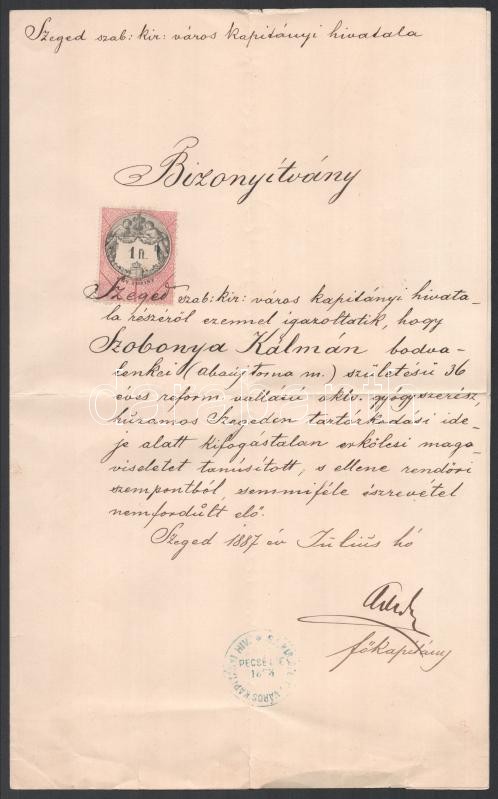 Szeged szab: kir: város kapitányi hivatala
Bizonyítvány
1 ft.
Szeged szab: kir: város kapitányi hivata-
la részéről ezennel igazoltatik, hogy
Szobonya Kálmán bodva-
lenkei (abaújtorna m.) születésü 36
éves reform. vallású okl. gyógyszerész,
húzamos Szegedin tartózkodási ide-
je alatt kifogástalan erkölcsi maga-
viseletet tanúsított, s ellene rendőri
szempontból, semmiféle észrevétel
nem fordúlt elő.
Szeged 1887 év Július hó
főkapitány
VÁROS KAPITÁNYI HIV.
PECSÉTJE
darabanth